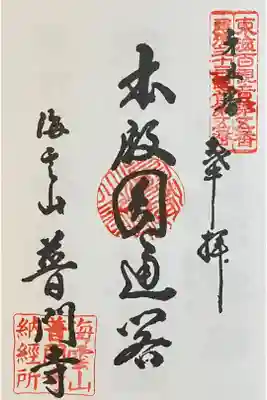 奉拝
東海百観音第五番
本殿円通閣
海雲山
普門寺
海雲山
普門寺
納経所